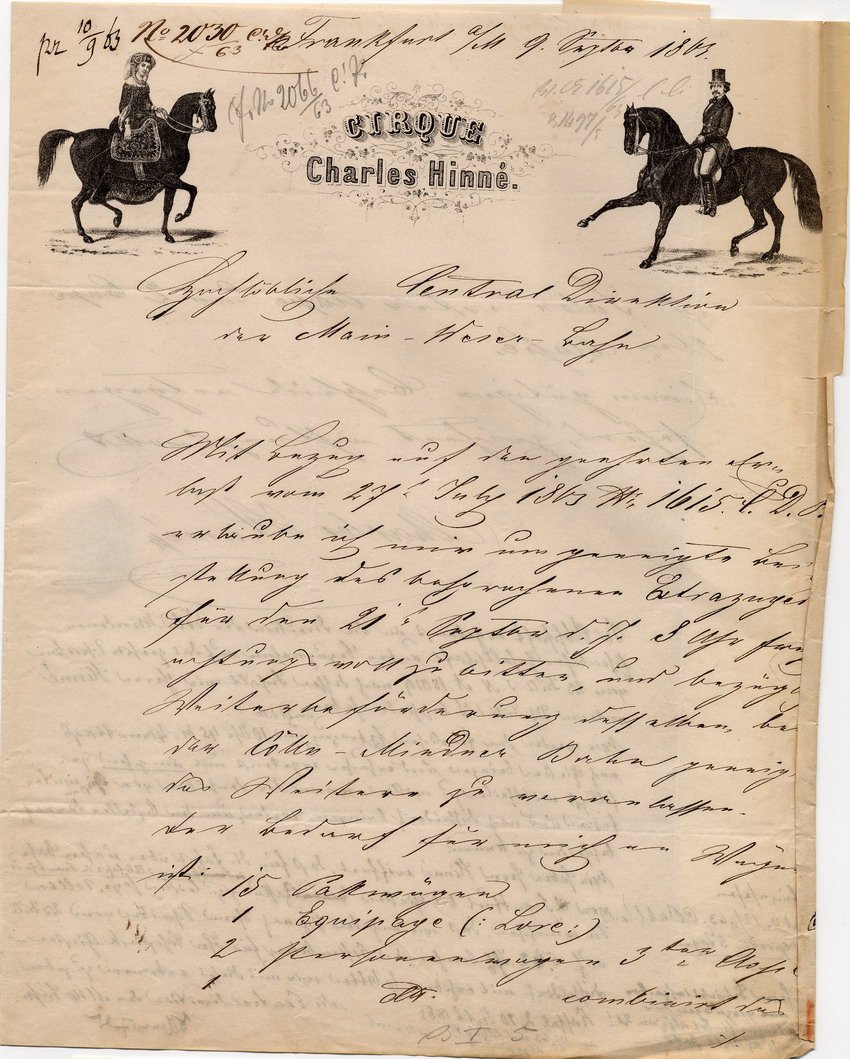 pr 10/9 63 No 2030/63 C. D. Frankfurt a/M 9. Septbr 1863.
cf. No 2066/63 C. D.
1615
CIRQUE
Charles Hinné.
Hochlöbliche Central Direktion
der Main-Weser-Bahn
Mit Bezug auf den geehrten Er-
laß vom 27t July 1863 No 1615. C. D.
erlaube ich mir um geneigte Bei-
stellung des besprochenen Extrazuges
für den 21t Septbr d. J. 8 Uhr
achtungsvoll zu bitten, und bezügl
Weiterbeförderung desselben be
der Cöln-Mindner Bahn geneig
das Weitere zu veranlassen.
Der Bedarf für mich an Wagen
ist:
15 Packwägen
1 Equipage (: Lore :)
2 Personenwagen 3ter Classe
1 dt. combinirt das